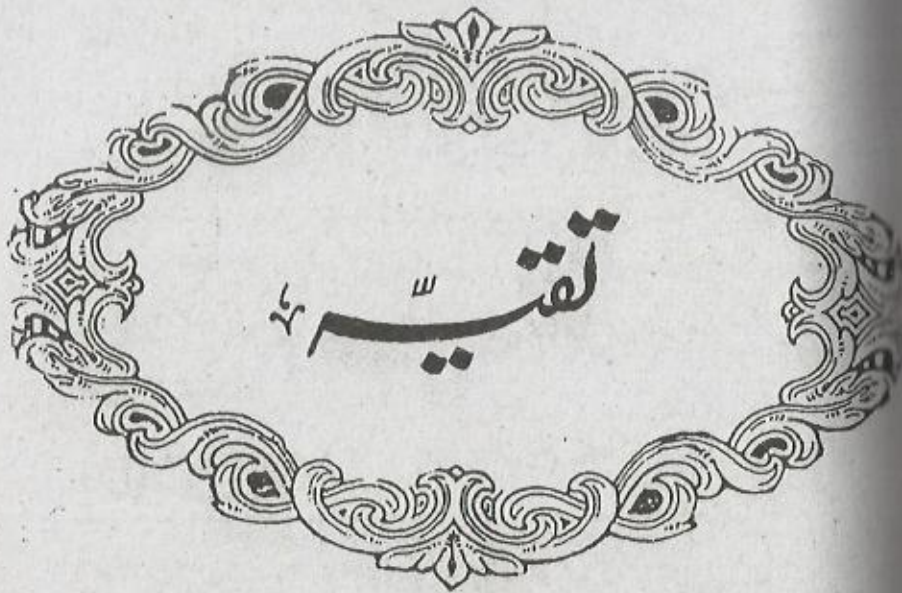 تقیّہ